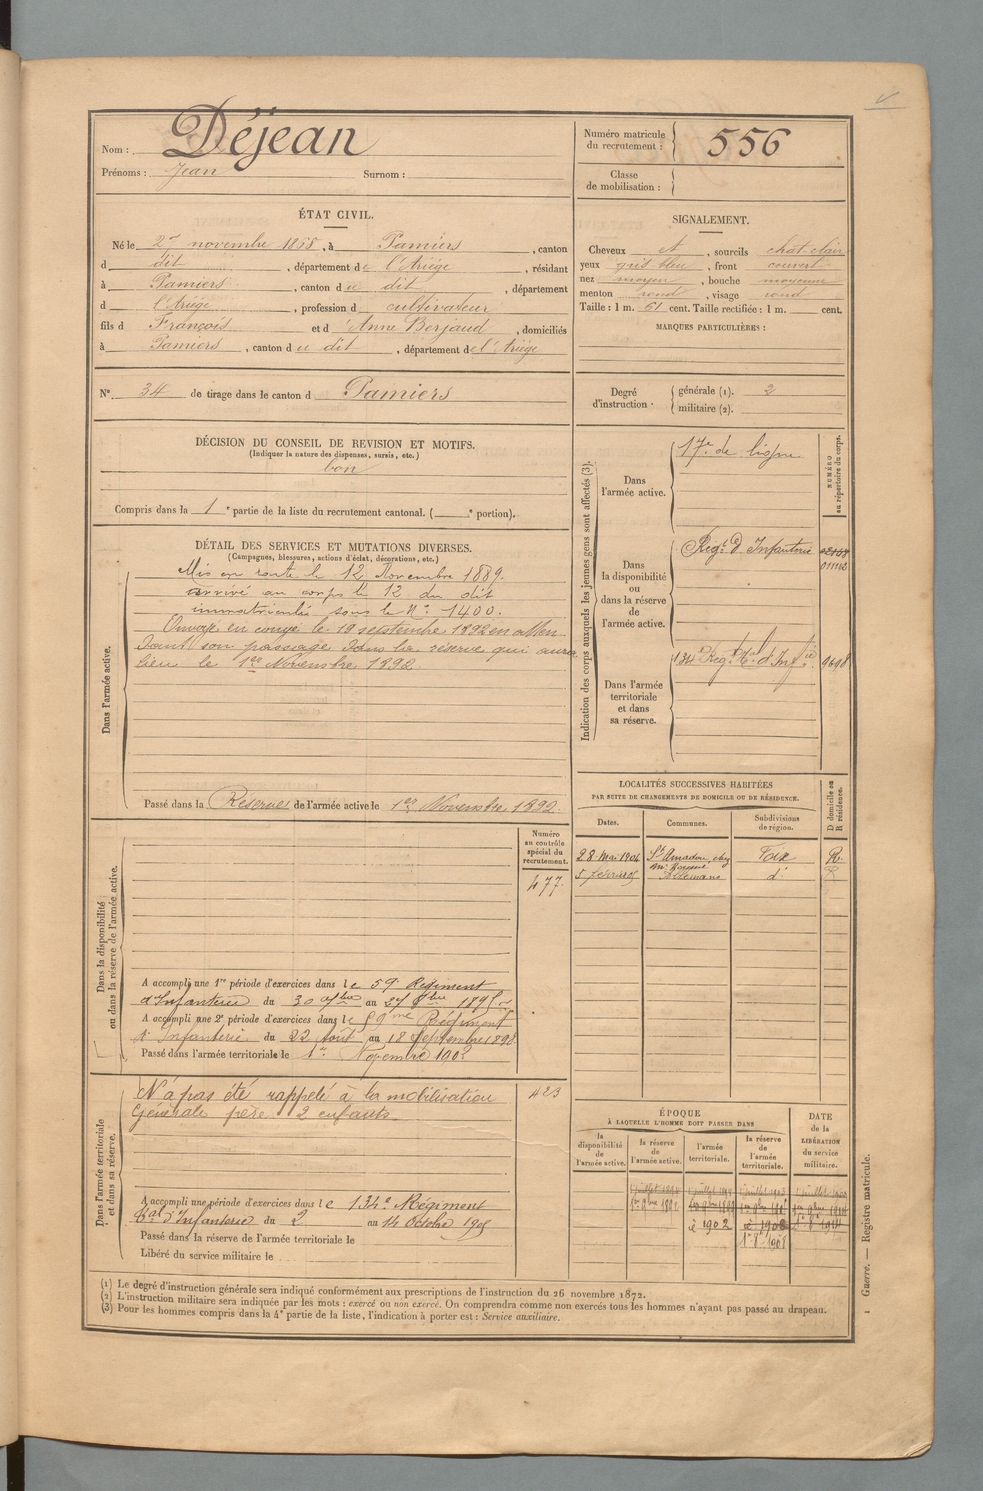 Nom : Déjean
Prénoms : Jean Surnom :
Numéro matricule du recrutement : 556
Classe de mobilisation :
ÉTAT CIVIL.
Né le 2 novembre 1868, à Pamiers, canton
d dit, département de l'Ariège, résidant
à Pamiers, canton du dit, département
d l'Ariège, profession d cultivateur
fils d François et d'Anne Berjaud, domiciliés
à Pamiers, canton du dit, département de l'Ariège
SIGNALEMENT.
Cheveux et, sourcils chat clair
yeux gris bleu, front couvert
nez moyen, bouche moyenne
menton rond, visage rond
Taille : 1 m. 61 cent. Taille rectifiée : 1 m. cent.
MARQUES PARTICULIÈRES :
N° 34 de tirage dans le canton d Pamiers
Degré d'instruction. générale (1). 2
militaire (2).
DÉCISION DU CONSEIL DE REVISION ET MOTIFS.
(Indiquer la nature des dispenses, sursis, etc.)
bon
Compris dans la 1e partie de la liste du recrutement cantonal. ( e portion).
DÉTAIL DES SERVICES ET MUTATIONS DIVERSES.
(Campagnes, blessures, actions d'éclat, décorations, etc.)
Dans l'armée active.
Mis en route le 12 Novembre 1889.
arrivé au corps le 12 du dit
immatriculé sous le N° 1400.
Envoyé en congé le 19 septembre 1892 en atten
dant son passage dans la réserve qui aura
lieu le 1er Novembre 1892
Passé dans la Réserve de l'armée active le 1er Novembre 1892
Indication des corps auxquels les jeunes gens sont affectés (3).
NUMÉRO au répertoire du corps.
Dans l'armée active.
17e de ligne
Dans la disponibilité ou dans la réserve de l'armée active.
Regt d'Infanterie
Dans l'armée territoriale et dans sa réserve.
134e Regt Ter d'Infie 9698
LOCALITÉS SUCCESSIVES HABITÉES
PAR SUITE DE CHANGEMENTS DE DOMICILE OU DE RÉSIDENCE.
Dates. Communes. Subdivisions de région. D domicile ou R résidence.
28 Mai 1904 St Amadou, chez Mr Foix R.
5 février Allemans d°
Dans la disponibilité ou dans la réserve de l'armée active.
Numéro au contrôle spécial du recrutement.
477
A accompli une 1re période d'exercices dans le 59e Régiment
d'Infanterie du 30 au 27 1895
A accompli une 2e période d'exercices dans le 59me Régiment
d'Infanterie du 22 août au 18 Septembre 1898
Passé dans l'armée territoriale le 1er Novembre 1902
Dans l'armée territoriale et dans sa réserve.
N'a pas été rappelé à la mobilisation 423
Générale père 2 enfants
A accompli une période d'exercices dans le 134e Régiment
d'Infanterie du 2 au 14 Octobre 1905
Passé dans la réserve de l'armée territoriale le
Libéré du service militaire le
ÉPOQUE
À LAQUELLE L'HOMME DOIT PASSER DANS
la disponibilité de l'armée active.
la réserve de l'armée active.
l'armée territoriale.
la réserve de l'armée territoriale.
DATE de la LIBÉRATION du service militaire.
1902 1908
(1) Le degré d'instruction générale sera indiqué conformément aux prescriptions de l'instruction du 26 novembre 1872.
(2) L'instruction militaire sera indiquée par les mots : exercé ou non exercé. On comprendra comme non exercés tous les hommes n'ayant pas passé au drapeau.
(3) Pour les hommes compris dans la 4e partie de la liste, l'indication à porter est : Service auxiliaire.
1 Guerre. — Registre matricule.